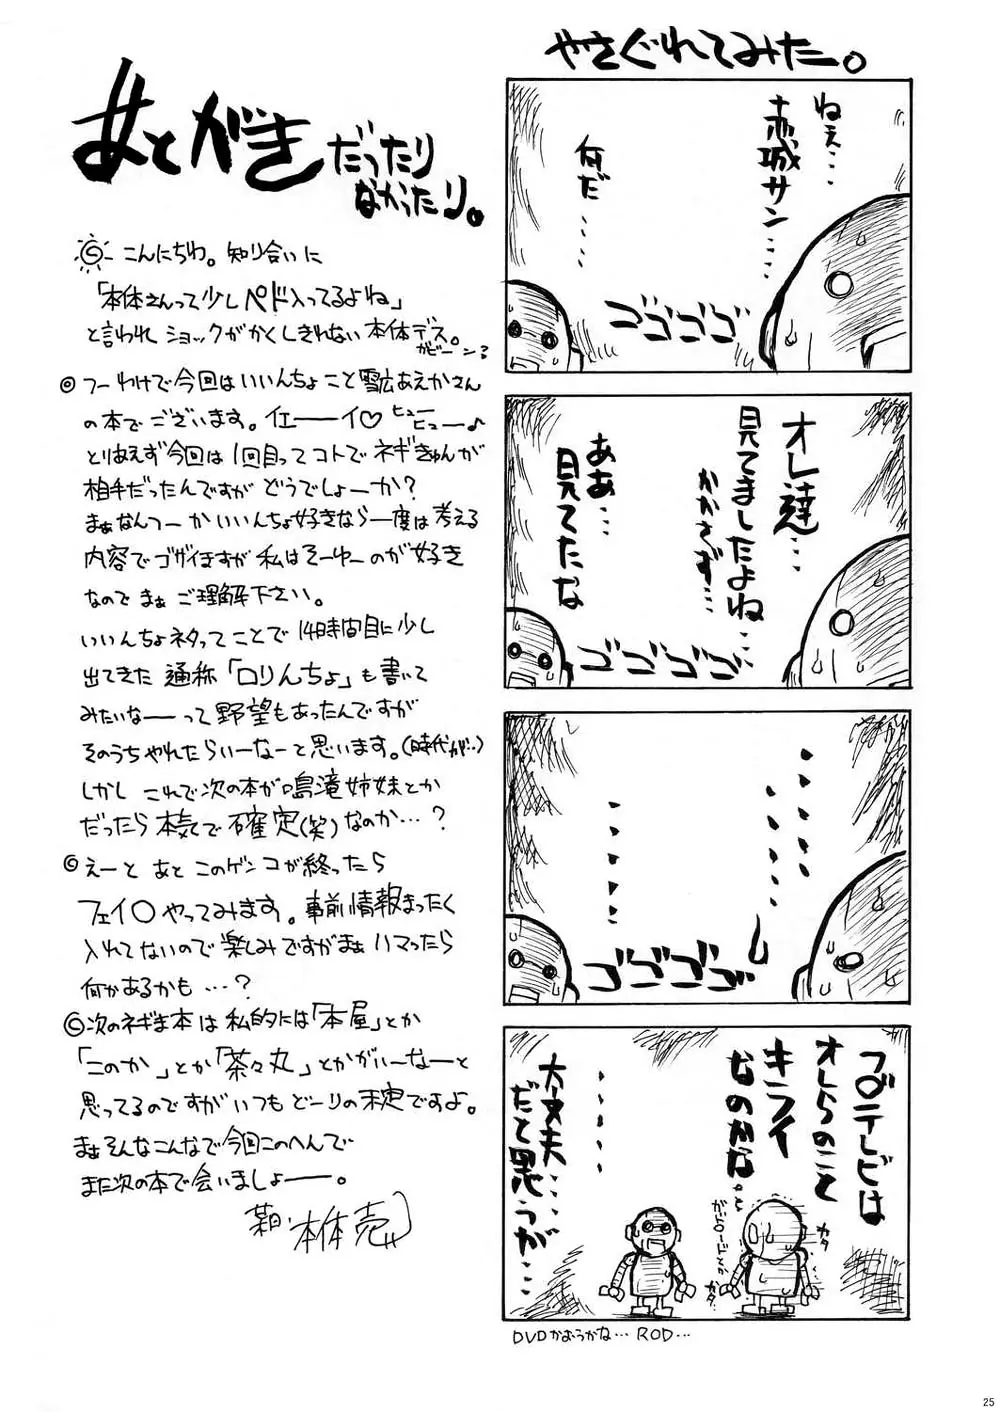 やさぐれてみたー。
ねぇ…
赤城サン……
何だ……
ゴゴゴゴ
オレ達…
見てましたよね…
かかさず…
ああ…
見てたな
ゴゴゴゴ
ゴゴゴゴ
プ〇テレビは
オレらのこと
キライ
なのかな。と
カタ
カタ…
大丈夫……
だと思うが…
DVDかおうかな… ROD…
あとがき だったり
なかったり。
こんにちわ。知り合いに
「本体さんって少しペド入ってるよね」
と言われ ショックがかくしきれない 本体デス。
ガビーン
◎ つーわけで今回はいいんちょこと雪広あえかさん
の本でございます。イエーーイ♡ ヒューヒュー♪
とりあえず今回は1回目ってコトで ネギきゅんが
相手だったんですが どうでしょーか?
まぁなんつーか いいんちょ好きなら一度は考える
内容でゴザイますが 私はそーゆーのが好き
なので まぁ ご理解下さい。
いいんちょネタってことで 148時間目に少し
出てきた 通称「ロりんちょ」も書いて
みたいなーーって野望もあったんですが
そのうちやれたらいーなーと思います。(時代が‥)
しかし これで次の本が鳴滝姉妹とか
だったら 本気で確定(笑)なのか…?
◎ えーと あと このゲンコが終ったら
フェイ〇やってみます。事前情報まったく
入れてないので楽しみですがまぁ ハマったら
何かあるかも …?
◎ 次のネギま本は 私的には「本屋」とか
「このか」とか「茶々丸」とかがいーなーと
思ってるのですがいつもどーりの未定ですよ。
まぁそんなこんなで今回このへんで
また次の本で会いましょーー。
本体売
25